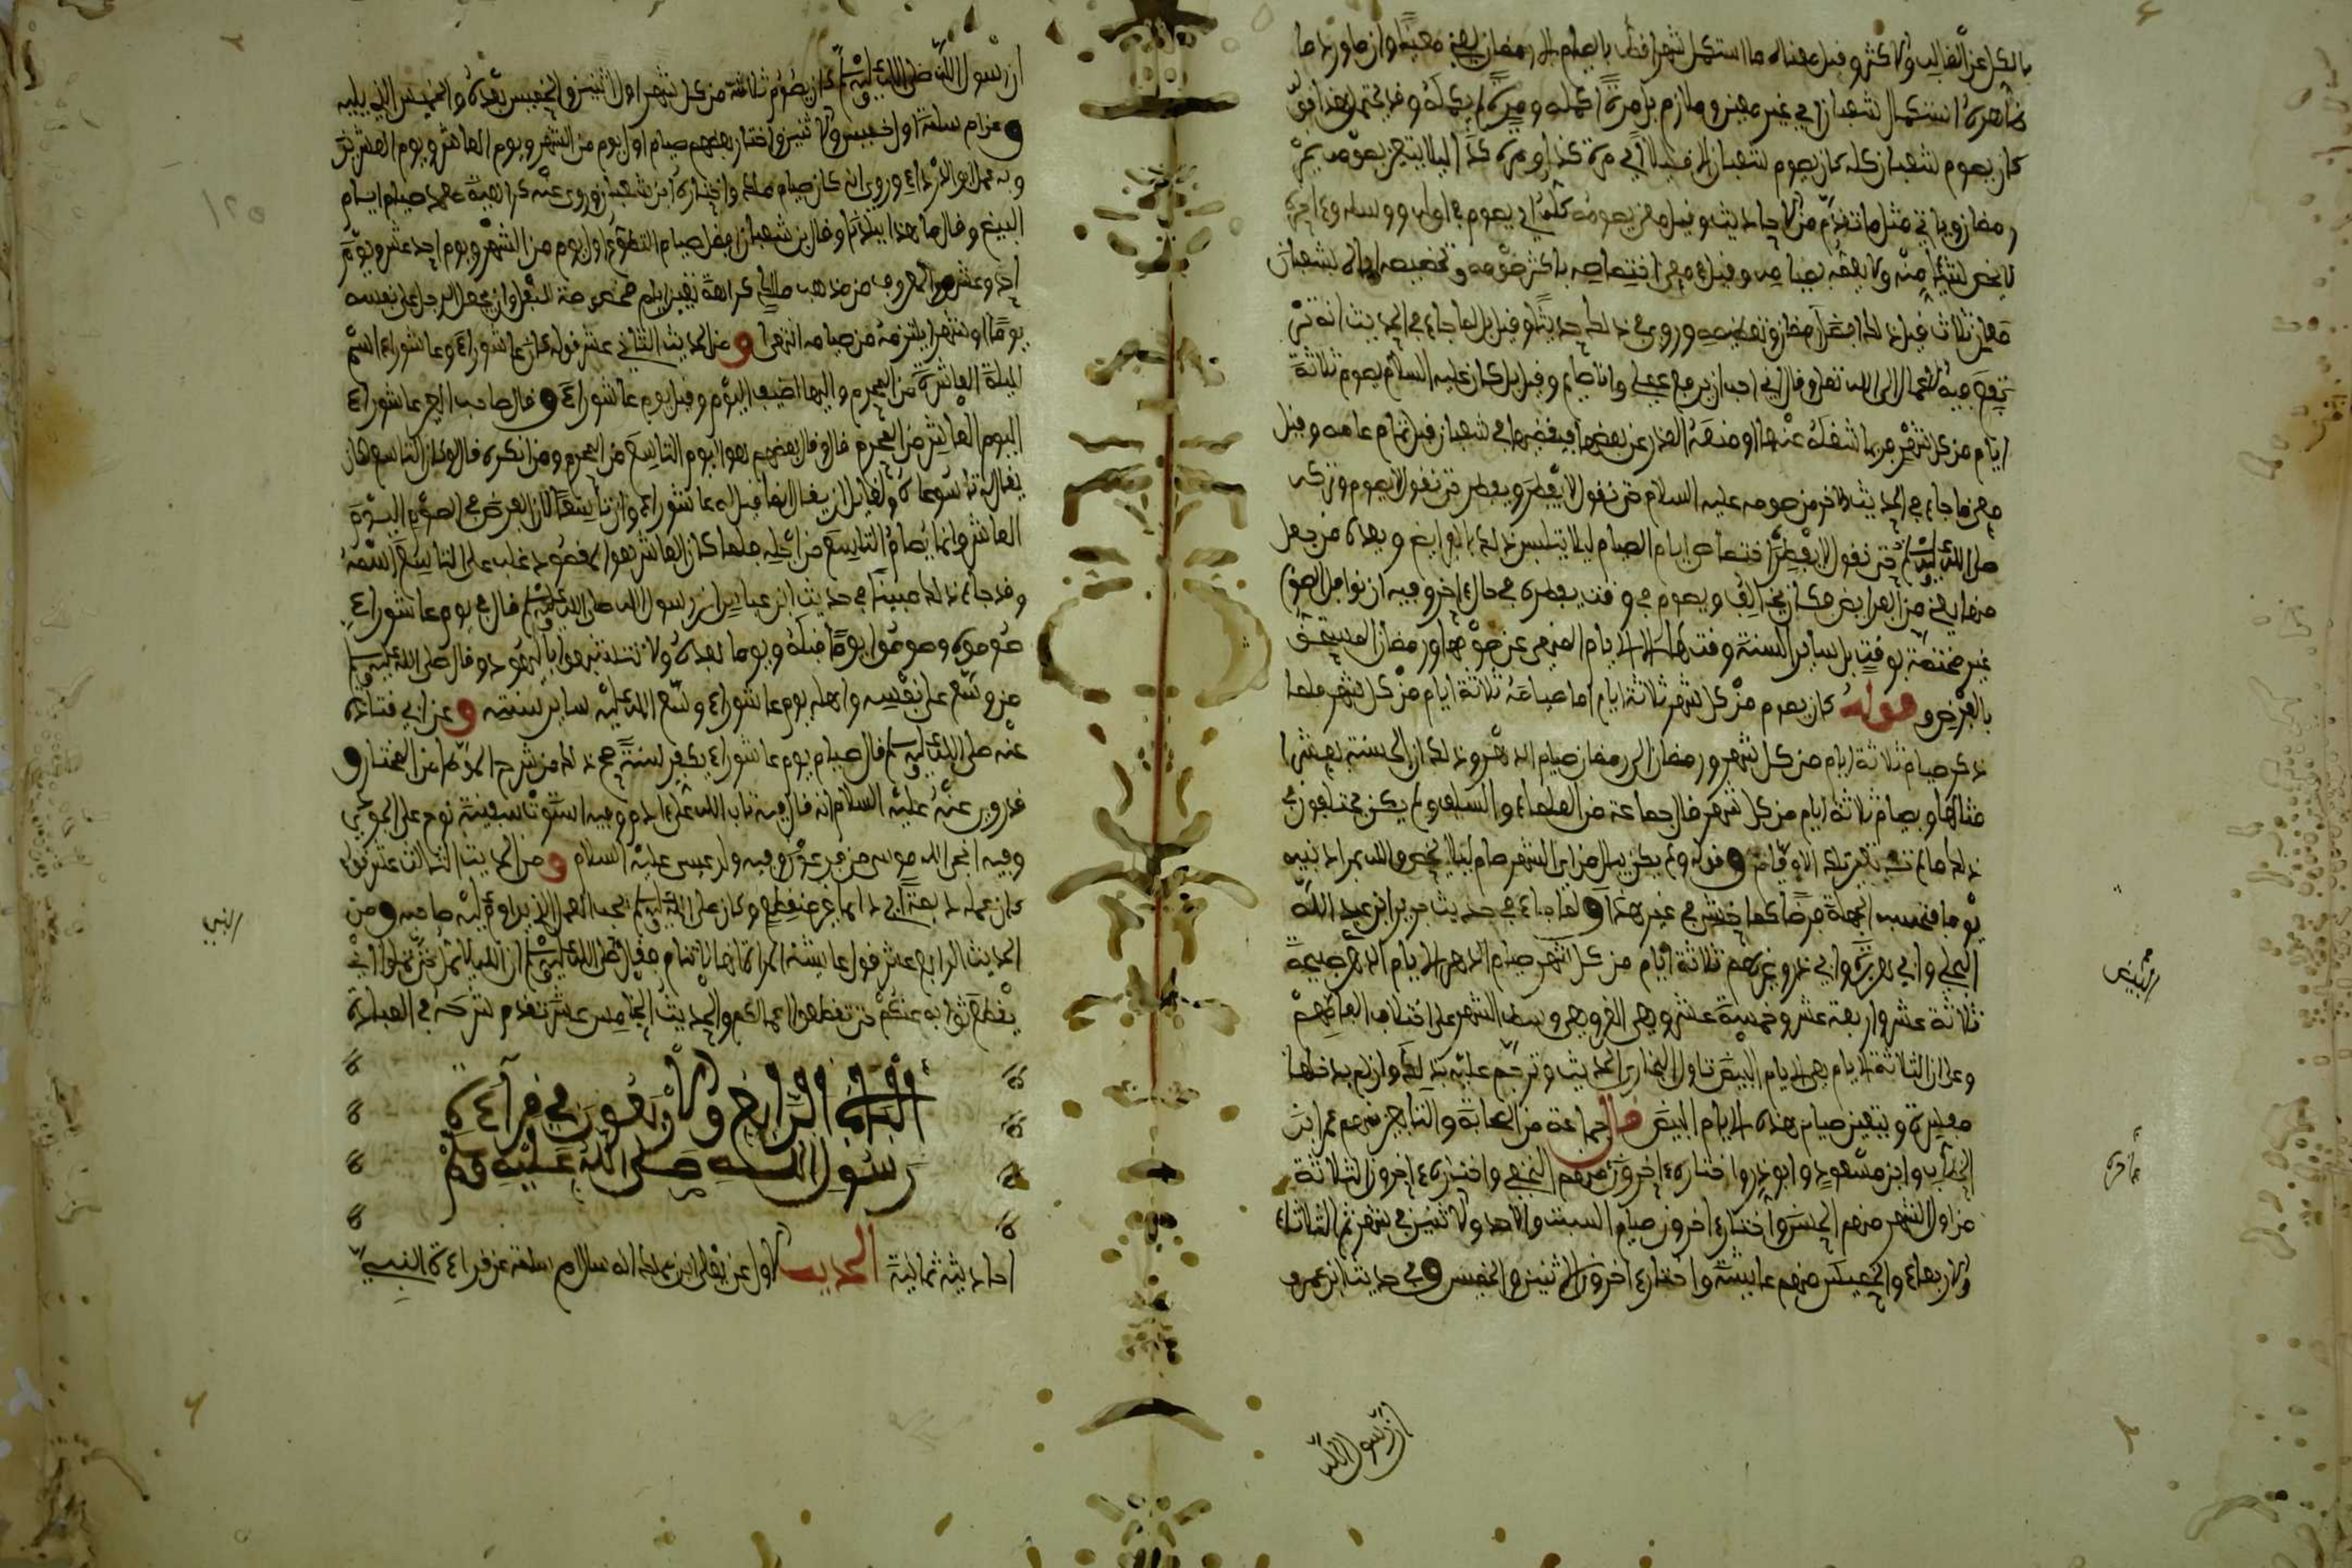 بالكل عن الغالب والاكثر وفيل معناه ما استكمل شهرا قط بالصيام الا رمضان يعني معينا وان ما ورد مما
ظاهره استكمال شعبان اي غير معين وملازم بل مرة اكمله ومرة لم يكمله وقد يحتمل هذا قوله
كان يصوم شعبان كله كان يصوم شعبان الا قليلا اي مرة كذا ومرة كذا ليلا يتعين بصومه يمر
رمضان وياتي مثل ما تقدم من الاحاديث وقيل معنى يصومه كله اي يصوم في اوله ووسطه وءاخره
لا يخص شيئا منه ولا يعمه بصيامه وقيل في معنى اختصاصه باكثر صومه وتخصيصه اياه لشعبان
معان ثلاث قيل ذلك لفضل رمضان وتعظيمه وروي في ذلك حديثا وقيل بل لما جاء في الحديث انه شهر
ترفع فيه الاعمال الى الله تعلى وقال اني احب ان يرفع عملي وانا صايم وقيل بل كان عليه السلام يصوم ثلاثة
ايام من كل شهر فربما شغله عنها او منعه العذر عن بعضها فيقضيها في شعبان قبل تمام عامه وقيل
معنى ما جاء في الحديث الاخر من صومه عليه السلام حتى نقول لا يفطر ويفطر حتى نقول لا يصوم وتركه
صلى الله عليه وسلم حتى نقول لا يفطر اختصاص ايام الصيام ليلا يتلبس ذلك بالفرايض ويعده من جهل
منها يعني من الفرايض فكان يخالف ويصوم في وقت يفطره في حال ءاخر وفيه ان نوافل الصوم
غير مختصة بوقت بل ساير السنة وقت لها الا الايام المنهي عن صومها ورمضان المستحق
بالفرض وقوله كان يصوم من كل شهر ثلاثة ايام اما صيامه ثلاثة ايام من كل شهر فلما
ذكر صيام ثلاثة ايام من كل شهر ورمضان الى رمضان صيام الدهر وذلك ان الحسنة بعشر
مثالها وبصيام ثلاثة ايام من كل شهر قال جماعة من العلماء والسلف ولم يكن يختلفون في
ذلك ما لم تتعين تلك الاوقات وقوله ولم يكن يبال من اي الشهر صام ليلا يخص والله بمراد نبيه
يوما فتحسب الجهلة فرضا كما خشي في غير هذا ولما جاء في حديث جرير ابن عبد الله
البجلي وابي هريرة وابي ذر وغيرهم ثلاثة ايام من كل شهر صيام الدهر الايام الغر صبيحة
ثلاثة عشر واربعة عشر وخمسة عشر وهي الغر وهي وسط الشهر على اختلاف الفاظهم
وعلى ان الثلاثة الايام هي الايام البيض تاول البخاري الحديث وترجم عليه بذلك وان لم يدخلها
معينة وبتعين صيام هذه الايام البيض قال جماعة من الصحابة والتابعين منهم عمر ابن
الخطاب وابن مسعود وابو ذر واختاره ءاخرون منهم النخعي واختاره ءاخرون الثلاثة
من اول الشهر منهم الحسن واختار ءاخرون صيام السبت والاحد والاثنين في شهر ثم الثلاثاء
والاربعاء والخميس منهم عايشة واختار ءاخرون الاثنين والخميس وفي حديث ابن عمر
ان رسول الله
البيض
ان رسول الله صلى الله عليه وسلم كان يصوم ثلاثة من كل شهر اول اثنين والخميس بعده والخميس الذي يليه
وعن ام سلمة اول خميس والاثنين واختار بعضهم صيام اول يوم من الشهر ويوم العاشر ويوم العشرين
وبه عمل ابو الدرداء وروي انه كان صيام مالك واختاره ابن شعبان وروي عنه كراهية تعمد صيام ايام
البيض وقال ما هذا ببلدنا وقال بن شعبان افضل صيام التطوع اول يوم من الشهر ويوم احد عشر ويوم
احد وعشرين والمعروف من مذهب مالك كراهة تعيين ايام مخصوصة للنفل وان يجعل الرجل على نفسه
يوما او شهرا يلتزمه من صيامه انتهى ومن الحديث الثاني عشر قوله كان عاشوراء وعاشوراء اسم
الليلة العاشرة من المحرم واليها اضيف اليوم وقيل يوم عاشوراء وقال صاحب العين عاشوراء
اليوم العاشر من المحرم قال وقال بعضهم هو اليوم التاسع من المحرم ومن انكره قال لو كان التاسع لكان
يقال له تاسوعاء ولقايل ان يقال انما قيل له عاشوراء وان تاسعا لان الغرض في الصوم اليوم
العاشر وانما يصام التاسع من اجله فلما كان العاشر هو المقصود غلب على التاسع اسمه
وقد جاء ذلك مبينا في حديث ابن عباس ان رسول الله صلى الله عليه وسلم قال في يوم عاشوراء
صوموه وصوموا يوما قبله ويوما بعده ولا تتشبهوا باليهود وقال صلى الله عليه وسلم
من وسع على نفسه واهله يوم عاشوراء وسع الله عليه ساير سنته وعن ابي قتادة
عنه صلى الله عليه وسلم قال صيام يوم عاشوراء يكفر لسنة صح ذلك من شرح الموطا من المختار و
قد روي عنه عليه السلام انه قال فيه تاب الله على ءادم وفيه استوت سفينة نوح على الجودي
وفيه انجى الله موسى من فرعون وفيه ولد عيسى عليه السلام ومن الحديث الثالث عشر قوله
كان عمله ديمة اي دايما غير منقطع وكان صلى الله عليه وسلم يحب العمل الذي يداوم عليه صاحبه ومن
الحديث الرابع عشر قول عايشة انها لا تنام فقال صلى الله عليه وسلم ان الله لا يمل حتى تملوا اي
يقطع ثوابه عنكم حتى تقطعوا اعمالكم والحديث الخامس عشر تقدم شرحه في العبادة
الباب الرابع والاربعون في قراءة
رسول الله صلى الله عليه وسلم
احاديثه ثمانية الحديث الاول عن يعلى ابن مملك انه سال ام سلمة عن قراءة النبي
النبي